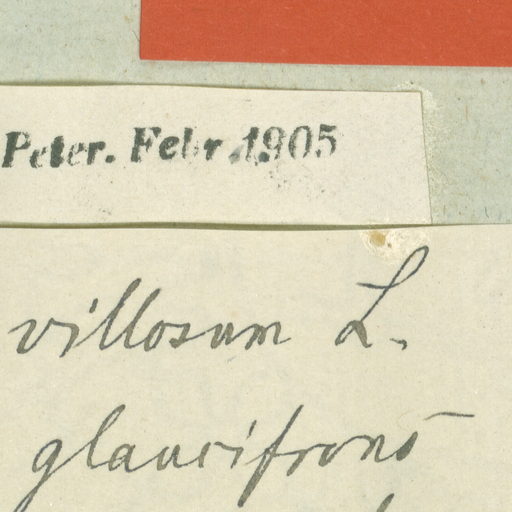 Peter. Febr. 1905
villosum L.
glaucifrons